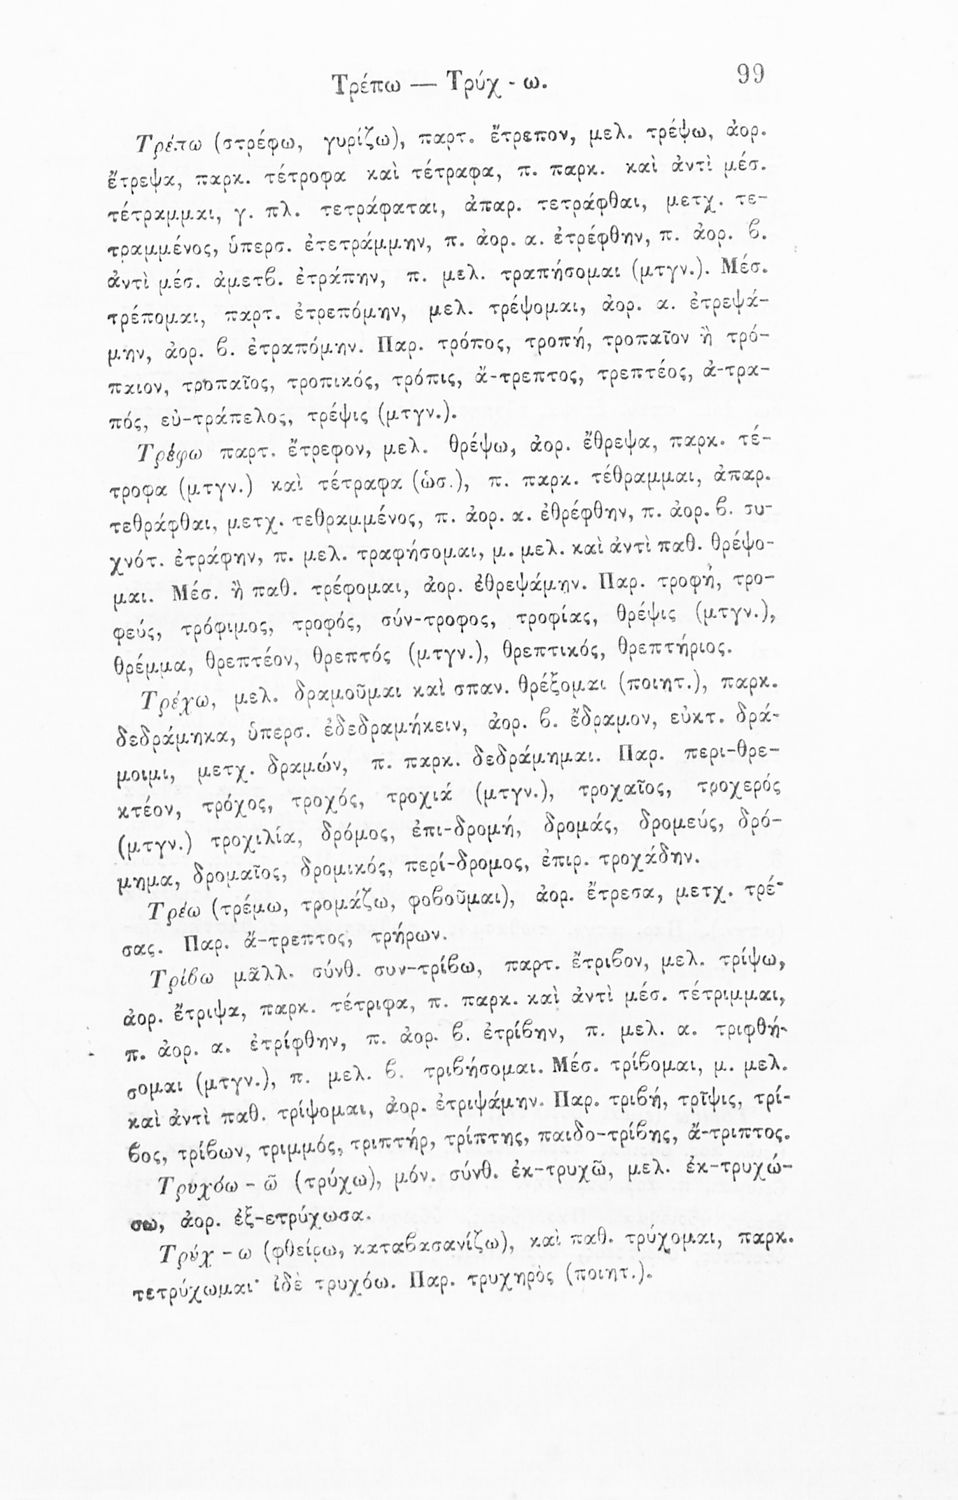 Τρέπω — Τρύχ - ω.
99
Τρέπω (στρέφω, γυρίζω), παρτ. ἔτρεπον, μελ. τρέψω, ἀορ.
ἔτρεψα, παρκ. τέτροφα καὶ τέτραφα, π. παρκ. καὶ ἀντὶ μέσ.
τέτραμμαι, γ. πλ. τετράφαται, ἀπαρ. τετράφθαι, μετχ. τε-
τραμμένος, ὑπερσ. ἐτετράμμην, π. ἀορ. α. ἐτρέφθην, π. ἀορ. ϐ.
ἀντὶ μέσ. ἀμετϐ. ἐτράπην, π. μελ. τραπήσομαι (μτγν.). Μέσ.
τρέπομαι, παρτ. ἐτρεπόμην, μελ. τρέψομαι, ἀορ. α. ἐτρεψά-
μην, ἀορ. ϐ. ἐτραπόμην. Παρ. τρόπος, τροπή, τροπαῖον ἢ τρό-
παιον, τροπαῖος, τροπικός, τρόπις, ἄ-τρεπτος, τρεπτέος, ἀ-τρα-
πός, εὐ-τράπελος, τρέψις (μτγν.).
Τρέφω παρτ. ἔτρεφον, μελ. θρέψω, ἀορ. ἔθρεψα, παρκ. τέ-
τροφα (μτγν.) καὶ τέτραφα (ὡσ.), π. παρκ. τέθραμμαι, ἀπαρ.
τεθράφθαι, μετχ. τεθραμμένος, π. ἀορ. α. ἐθρέφθην, π. ἀορ. ϐ. συ-
χνότ. ἐτράφην, π. μελ. τραφήσομαι, μ. μελ. καὶ ἀντὶ παθ. θρέψο-
μαι. Μέσ. ἢ παθ. τρέφομαι, ἀορ. ἐθρεψάμην. Παρ. τροφή, τρο-
φεύς, τρόφιμος, τροφός, σύν-τροφος, τροφίας, θρέψις (μτγν.),
θρέμμα, θρεπτέον, θρεπτός (μτγν.), θρεπτικός, θρεπτήριος.
Τρέχω, μελ. δραμοῦμαι καὶ σπαν. θρέξομαι (ποιητ.), παρκ.
δεδράμηκα, ὑπερσ. ἐδεδραμήκειν, ἀορ. ϐ. ἔδραμον, εὐκτ. δρά-
μοιμι, μετχ. δραμών, π. παρκ. δεδράμημαι. Παρ. περι-θρε-
κτέον, τρόχος, τροχός, τροχιά (μτγν.), τροχαῖος, τροχερός
(μτγν.) τροχιλία, δρόμος, ἐπι-δρομή, δρομάς, δρομεύς, δρό-
μημα, δρομαῖος, δρομικός, περί-δρομος, ἐπιρ. τροχάδην.
Τρέω (τρέμω, τρομάζω, φοϐοῦμαι), ἀορ. ἔτρεσα, μετχ. τρέ-
σας. Παρ. ἄ-τρεπτος, τρήρων.
Τρίϐω μᾶλλ. σύνθ. συν-τρίϐω, παρτ. ἔτριϐον, μελ. τρίψω,
ἀορ. ἔτριψα, παρκ. τέτριφα, π. παρκ. καὶ ἀντὶ μέσ. τέτριμμαι,
π. ἀορ. α. ἐτρίφθην, π. ἀορ. ϐ. ἐτρίϐην, π. μελ. α. τριφθή-
σομαι (μτγν.), π. μελ. ϐ. τριϐήσομαι. Μέσ. τρίϐομαι, μ. μελ.
καὶ ἀντὶ παθ. τρίψομαι, ἀορ. ἐτριψάμην. Παρ. τριϐή, τρῖψις, τρί-
ϐος, τρίϐων, τριμμός, τριπτήρ, τρίπτης, παιδο-τρίϐης, ἄ-τριπτος.
Τρυχόω - ῶ (τρύχω), μόν. σύνθ. ἐκ-τρυχῶ, μελ. ἐκ-τρυχώ-
σω, ἀορ. ἐξ-ετρύχωσα.
Τρύχ - ω (φθείρω, καταϐασανίζω), καὶ παθ. τρύχομαι, παρκ.
τετρύχωμαι· ἰδὲ τρυχόω. Παρ. τρυχηρὸς (ποιητ.).